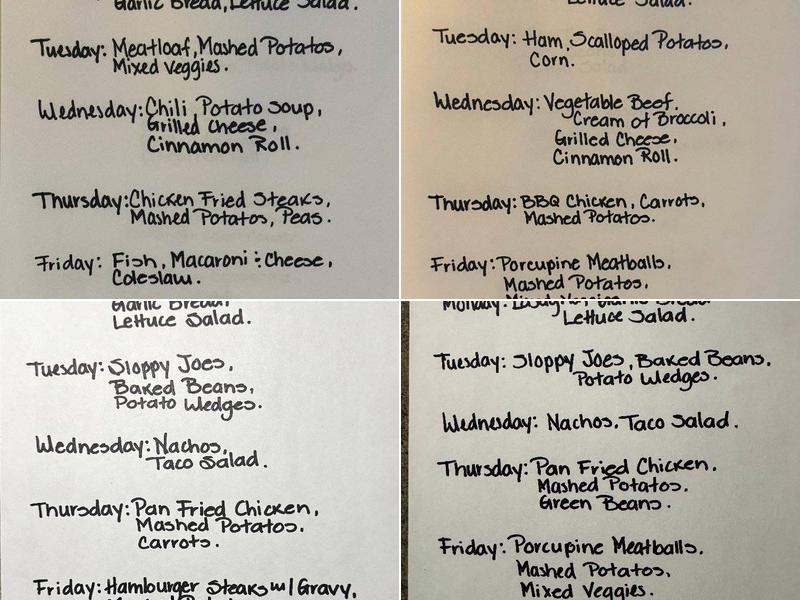 Garlic Bread, Lettuce Salad.
Tuesday: Meatloaf, Mashed Potatos,
Mixed Veggies.
Wednesday: Chili, Potato Soup,
Grilled Cheese,
Cinnamon Roll.
Thursday: Chicken Fried Steaks,
Mashed Potatos, Peas.
Friday: Fish, Macaroni & Cheese,
Coleslaw.
Lettuce Salad.
Tuesday: Ham, Scalloped Potatos,
Corn.
Wednesday: Vegetable Beef.
Cream of Broccoli,
Grilled Cheese,
Cinnamon Roll.
Thursday: BBQ Chicken, Carrots,
Mashed Potatos.
Friday: Porcupine Meatballs,
Mashed Potatos,
Garlic Bread,
Lettuce Salad.
Tuesday: Sloppy Joes,
Baked Beans,
Potato Wedges.
Wednesday: Nachos,
Taco Salad.
Thursday: Pan Fried Chicken,
Mashed Potatos.
Carrots.
Friday: Hamburger Steaks w/ Gravy,
Monday:
Lettuce Salad.
Tuesday: Sloppy Joes, Baked Beans,
Potato Wedges.
Wednesday: Nachos, Taco Salad.
Thursday: Pan Fried Chicken,
Mashed Potatos.
Green Beans.
Friday: Porcupine Meatballs,
Mashed Potatos,
Mixed Veggies.